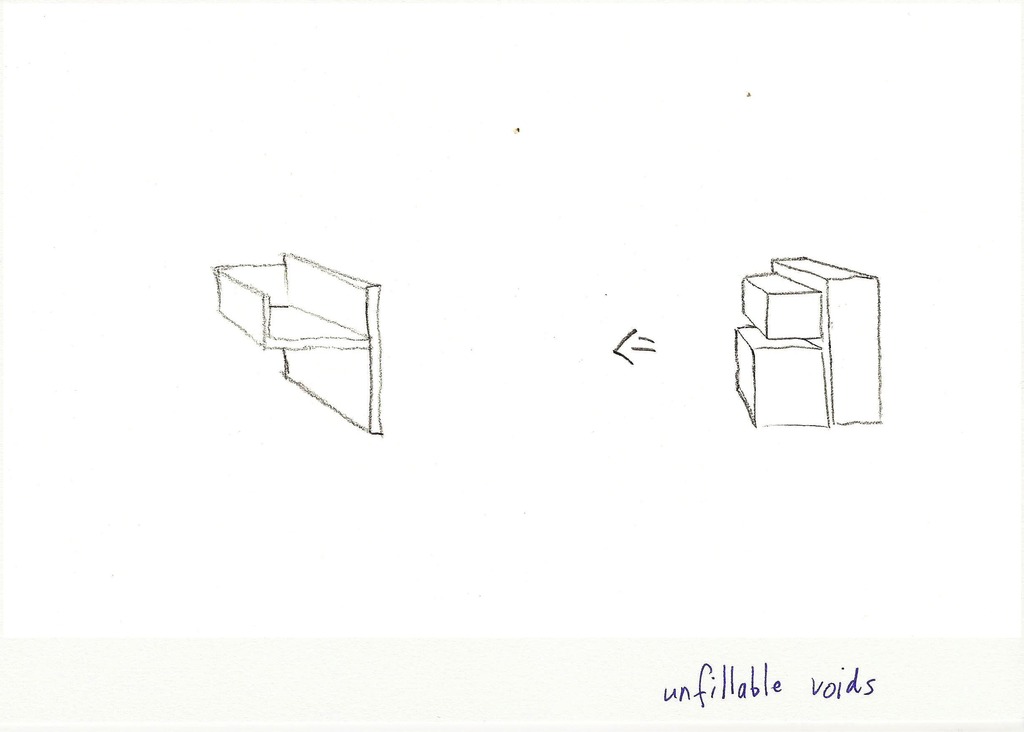 unfillable voids